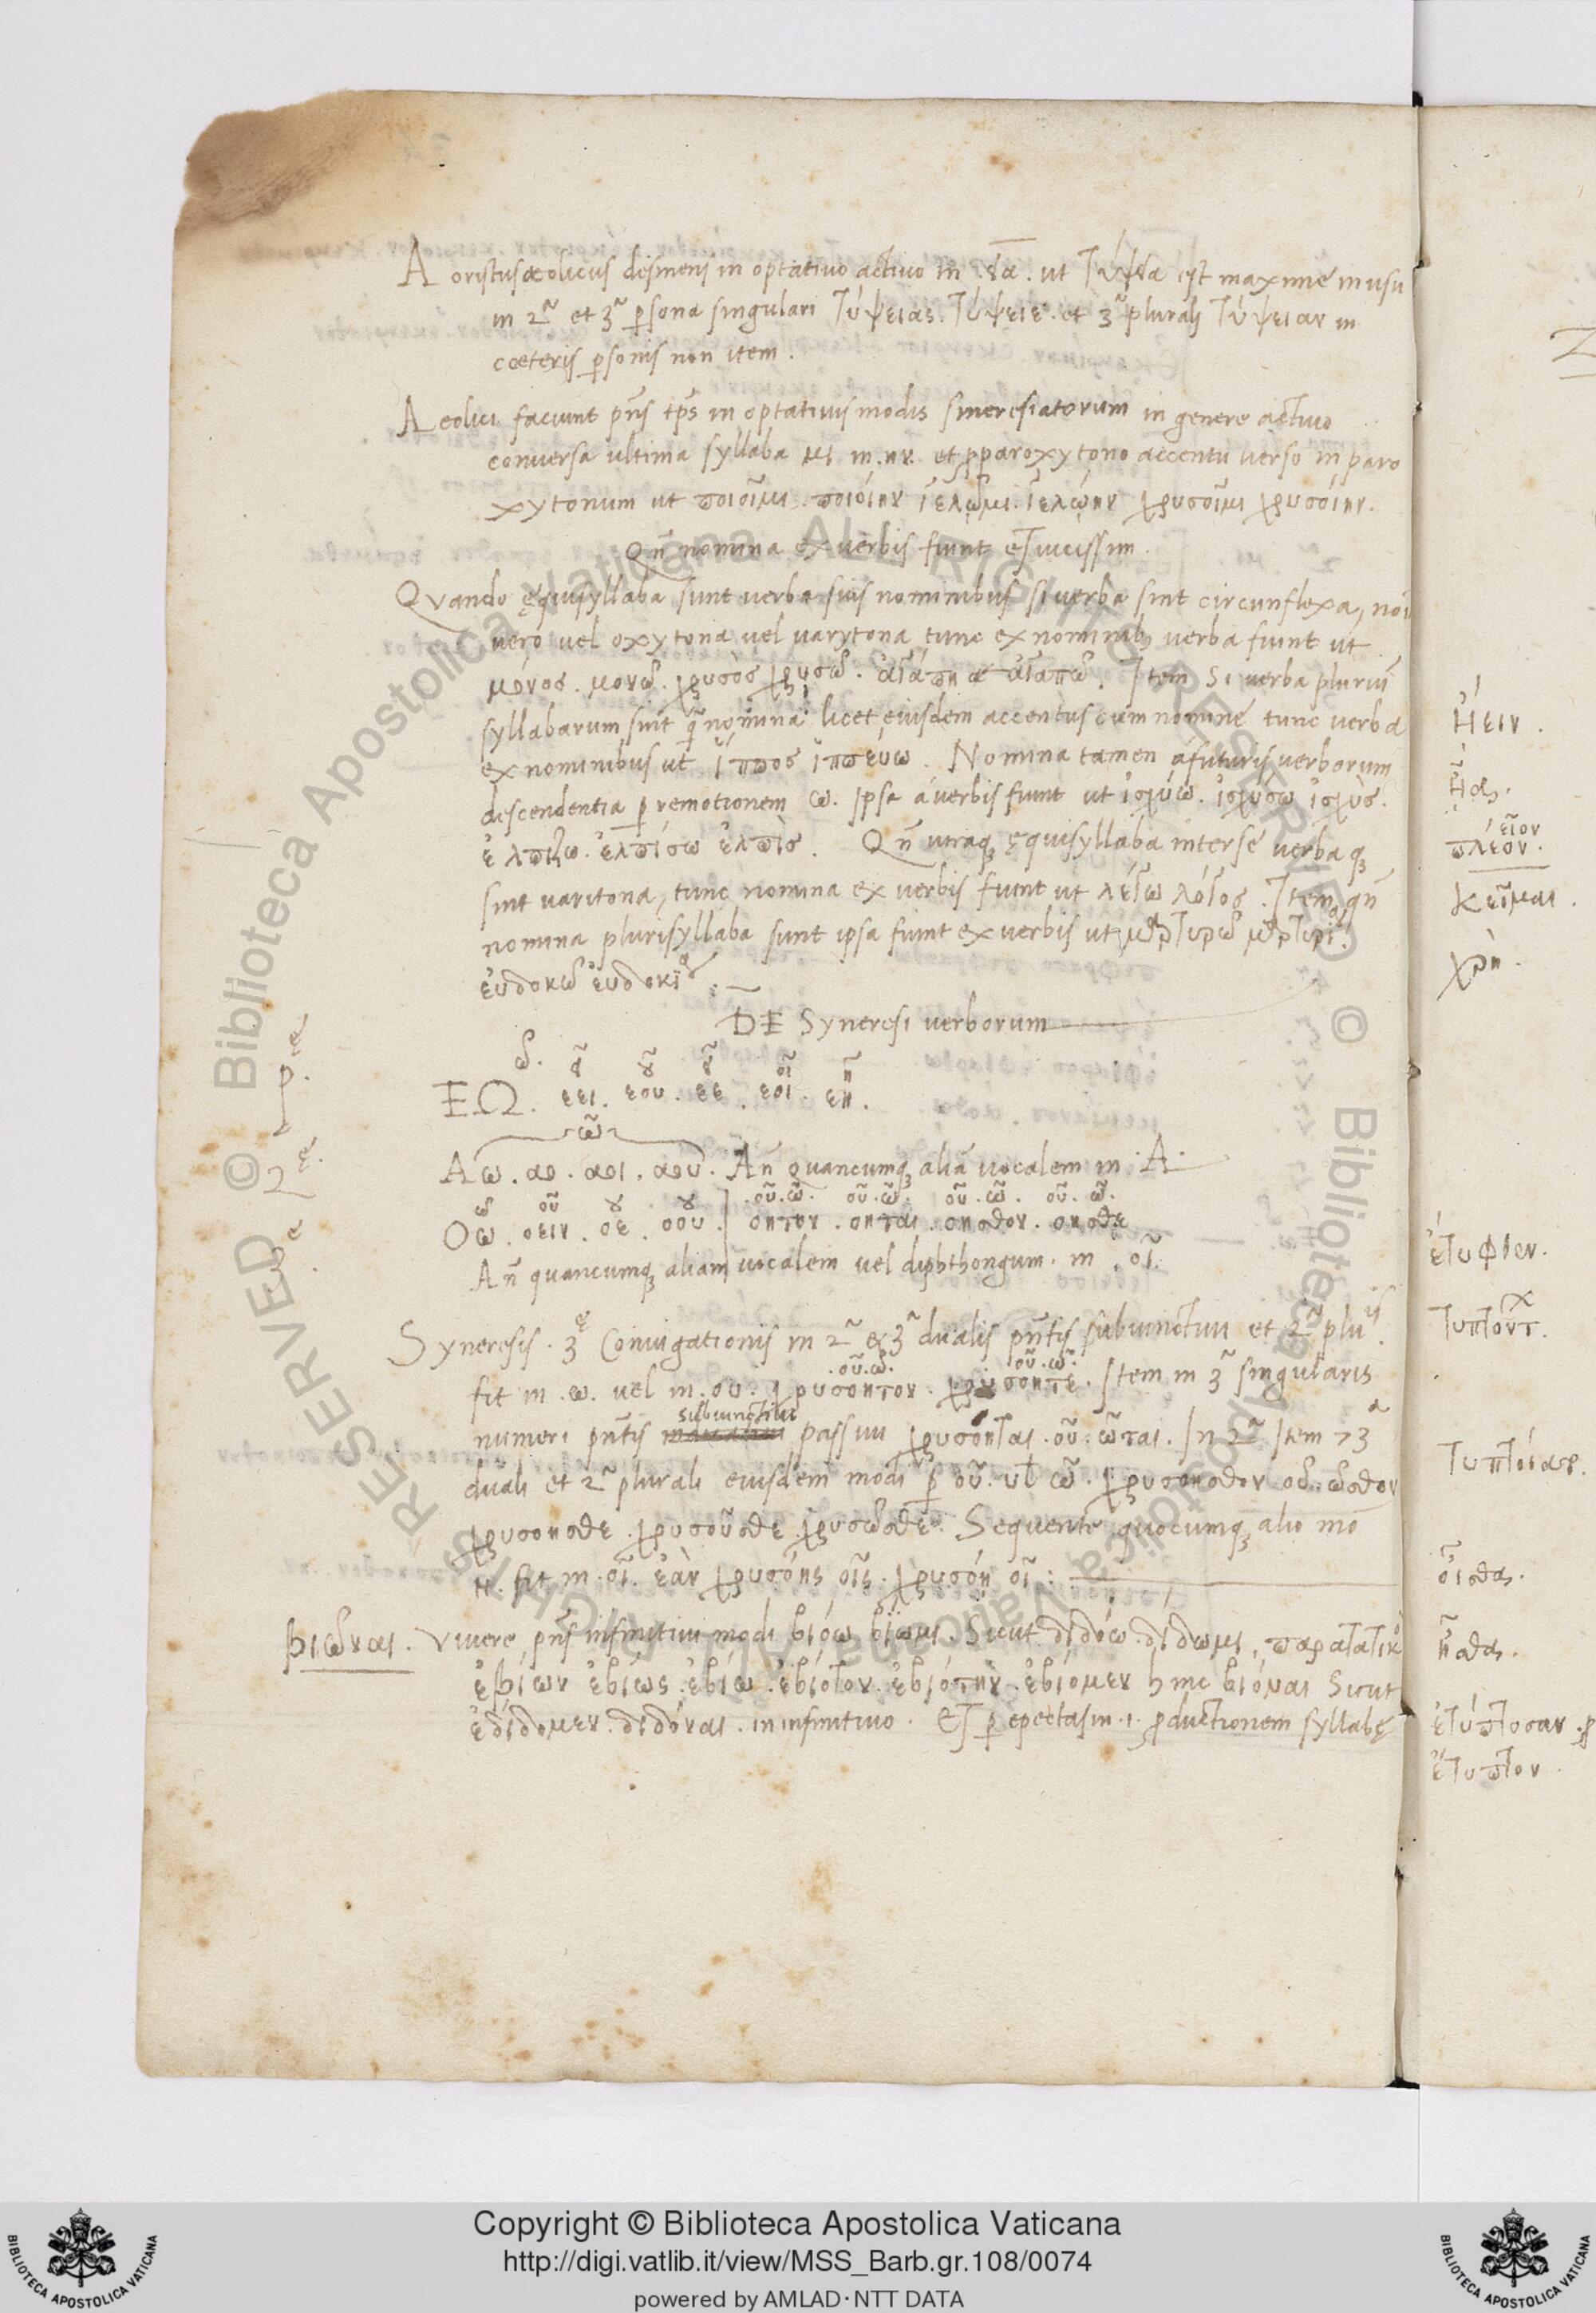 Aoristus æolicus desinens in optativo activo in .εια. ut τύψεια est maxime in usu
in 2ã et 3ã p̱sona singulari τύψειας. τύψειε. et 3ã plurali τύψειαν in
cœteris p̱sonis non item.
Aeolici faciunt pñs tp̃s in optativis modis sineresiatorum in genere activo
conversa ultima syllaba μι in .ην. et p̱paroxytono accentu verso in paro
xytonum ut ποιοῖμι. ποιοίην γελῷμι. γελῴην χρυσοῖμι χρυσοίην.
Qñ nomina ex verbis fiunt et vicissim.
Quando ęquisyllaba sunt verba suis nominibus si verba sint circunflexa, noĩ
vero vel oxytona vel varytona, tunc ex nominibꝫ verba fiunt ut
μόνος. μονῶ. χρυσὸς χρυσῶ. ἀγάπη ἀγαπῶ. Item Si verba pluriũ
syllabarum sint q̃ nomina licet eiusdem accentus cum nomine tunc verba
ex nominibus ut ἵππος ἱππεύω. Nomina tamen a futuris verborum
discendentia p̱ remotionem ω. ipsa a verbis fiunt ut ἰσχύω. ἰσχύσω ἰσχὺς.
ἐλπίζω. ἐλπίσω ἐλπὶς. Qñ utraqꝫ ęquisyllaba inter se verbaqꝫ
sint varitona, tunc nomina ex verbis fiunt ut λέγω λόγος. Item qñ
nomina plurisyllaba sunt ipsa fiunt ex verbis ut μαρτυρῶ μαρτυρία.
εὐδοκῶ εὐδοκία :~
DE Syneresi verborum
ῶ. εῖ οῦ εῖ οῖ ῆ
pę. ΕΩ. εει. εου. εε. εοι. εη.
ῶ
2ę. Αω. αο. αοι. αου. Añ quancumqꝫ aliã vocalem in .A.
ῶ οῦ οῦ οῦ .οῦ.ῶ. οῦ.ῶ. οῦ.ῶ. οῦ.ῶ.
3ę. Οω. οειν. οε. οου. οητον. οηται. οησθον. οησθε
Añ quancumqꝫ aliam vocalem vel diphthongum. in . οῖ.
Syneresis. 3ę Coniugationis in 2ã & 3ã dualis pñtis subiunctivi et 2ã pluis.
.οῦ.ῶ. .οῦ.ῶ.
fit in .ω. vel in .ου. χρυσοητον. χρυσοητε. Item in 3ã singularis
subiunctivi
numeri pñtis passivi χρυσόηται. οῦ. ῶται. In 2ã Item 7 3ã
duali et 2ã plurali eiusdem modi p̱ οῦ. vl ῶ. χρυσοησθον οῦ. ῶσθον
χρυσοησθε. χρυσοῦσθε. χρυσῶσθε. Sequente quocumqꝫ alio mo
η. fit in .οῖ. ἐὰν χρυσόῃς οῖς. χρυσόῃ οῖ :
βιῶναι. Vivere pñs infinitivi modi βιόω βίωμι. Sicut διδόω. δίδωμι, παρατατικὸ
ἐβίων ἐβίως. ἐβίω. ἐβίοτον. ἐβιότην. ἐβίομεν hinc βιόναι Sicut
ἐδίδομεν. διδόναι. in infinitivo. Et p̱ epectasin .i. p̱ductionem syllabę
ἤειν.
ἦς.
εῖον
πλέον.
κεῖμαι.
χρὴ.
ἐτυφθεν.
τυπτοντ.
οἶσθας.
ἦσθας.
ἐτύπτοσαν.
ἔτυπτον.
Copyright © Biblioteca Apostolica Vaticana
http://digi.vatlib.it/view/MSS_Barb.gr.108/0074
powered by AMLAD·NTT DATA